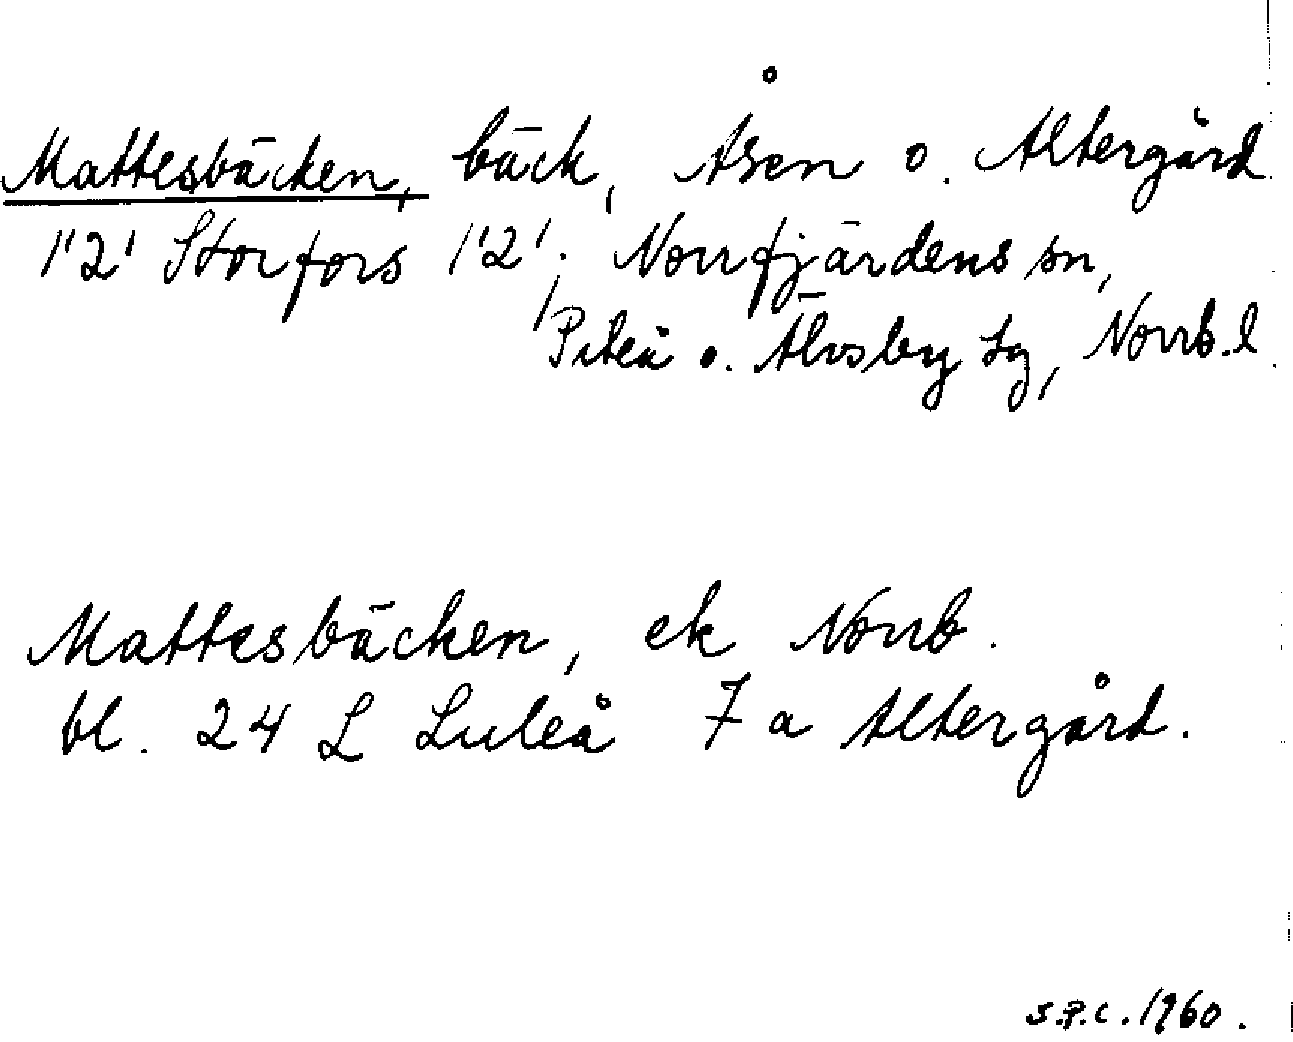 Mattesbäcken, bäck, Åsen o. Altergård
1'2' Storfors 1'2'; Norrfjärdens sn,
Piteå o. Älvsby tg, Norrb. l.
Mattesbäcken, ek Norrb.
bl. 24 L Luleå 7 a Altergård.
S.P.C. 1960.